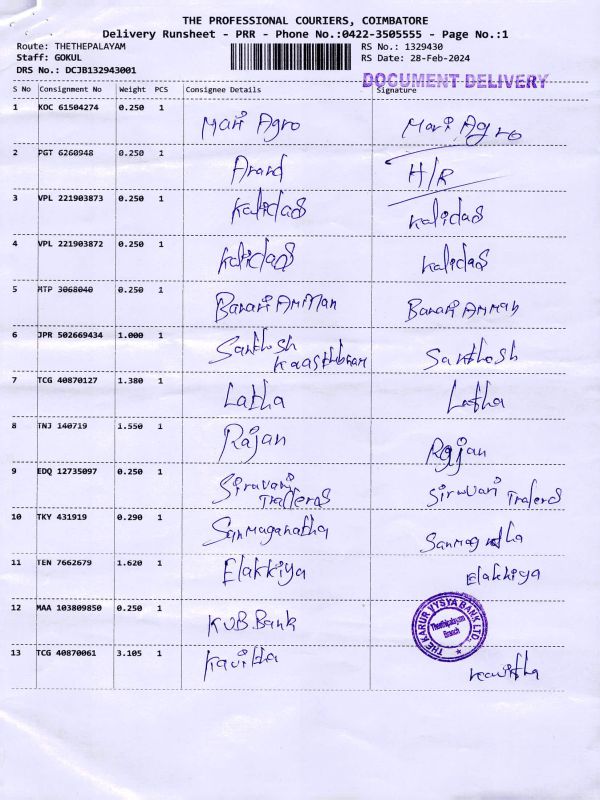 THE PROFESSIONAL COURIERS, COIMBATORE
Delivery Runsheet - PRR - Phone No.:0422-3505555 - Page No.:1
Route: THETHEPALAYAM RS No.: 1329430
Staff: GOKUL RS Date: 28-Feb-2024
DRS No.: DCJB132943001
DOCUMENT DELIVERY
S No Consignment No Weight PCS Consignee Details Signature
1 KOC 61504274 0.250 1 Mari Agro Mari Agro
2 PGT 6260948 0.250 1 Anand H/R
3 VPL 221903873 0.250 1 Kalidas Kalidas
4 VPL 221903872 0.250 1 Kalidas Kalidas
5 MTP 3068040 0.250 1 Banari Amman Banari Amman
6 JPR 502669434 1.000 1 Santhosh Santhosh
7 TCG 40870127 1.380 1 Latha Latha
8 TNJ 140719 1.550 1 Rajan Rajan
9 EDQ 12735097 0.250 1 Siruvani Siruvani Traders
Traders
10 TKY 431919 0.290 1 Sanmaganatha
11 TEN 7662679 1.620 1 Elakkiya Elakkiya
12 MAA 103809850 0.250 1 KVB.Bank
THE KARUR VYSYA BANK LTD.
Thethipalayam
Branch
13 TCG 40870061 3.105 1 Kavitha Kavitha